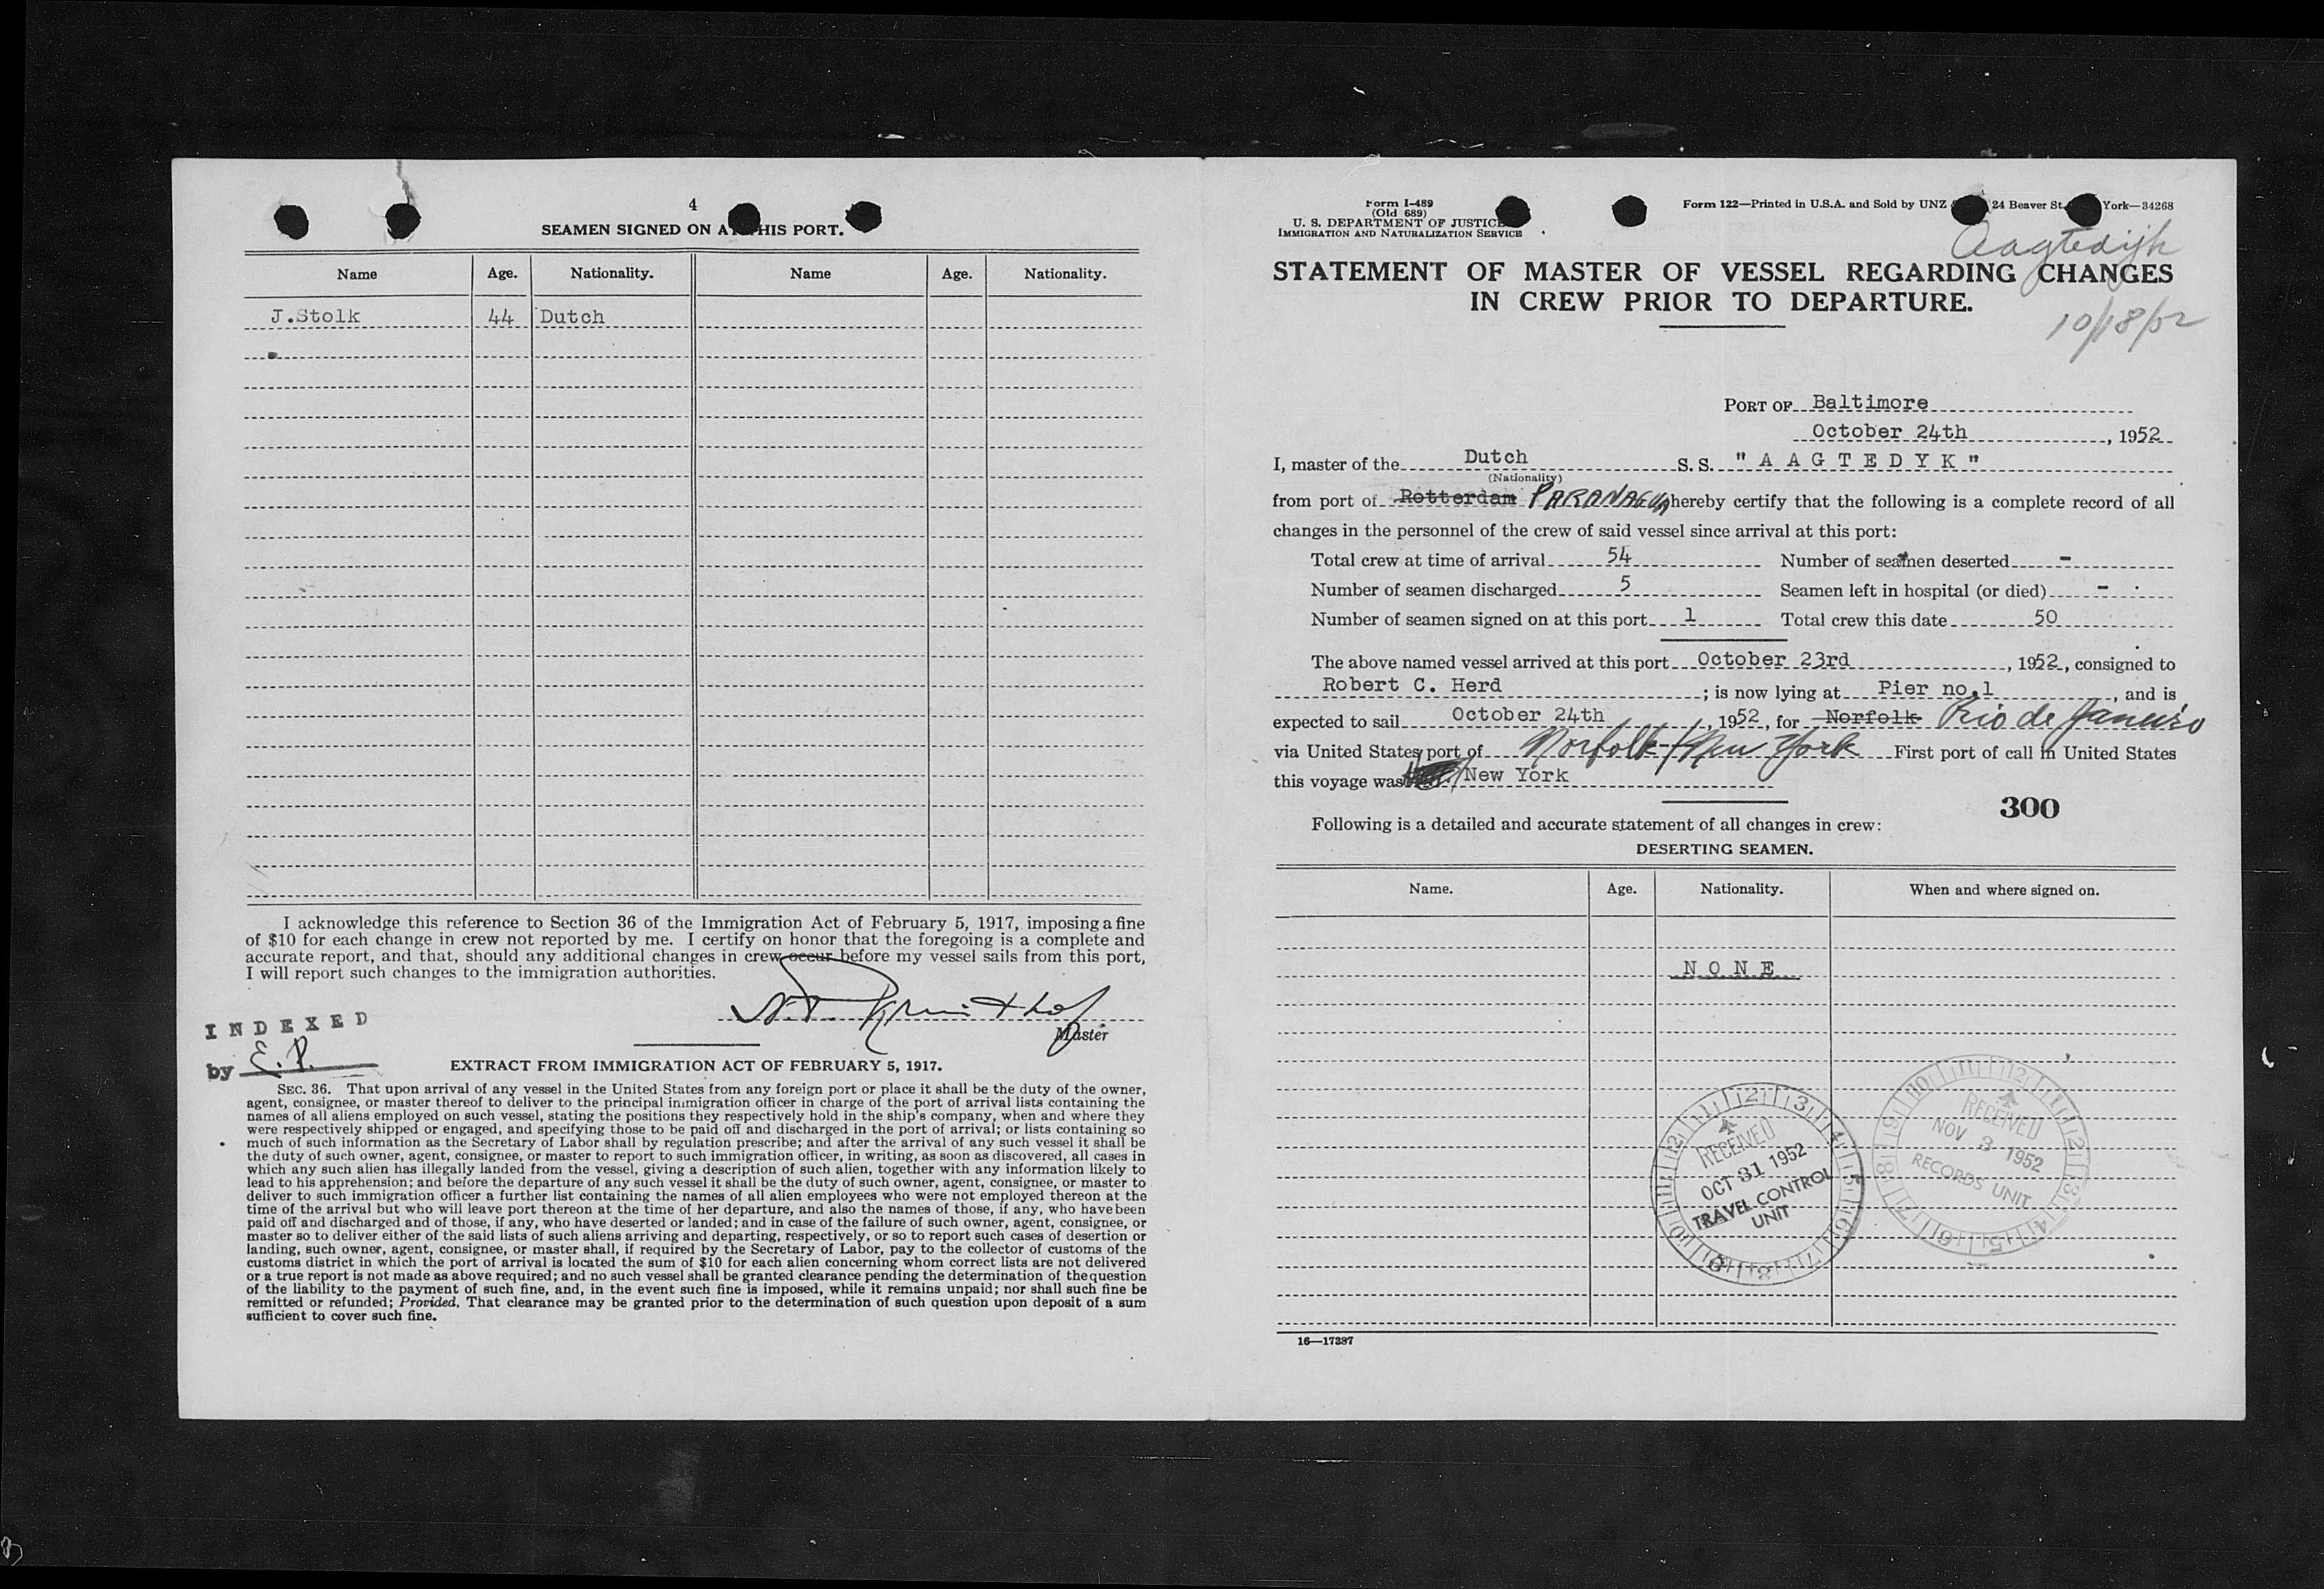 4
SEAMEN SIGNED ON AT THIS PORT.
Name Age. Nationality. Name Age. Nationality.
J.Stolk 44 Dutch
I acknowledge this reference to Section 36 of the Immigration Act of February 5, 1917, imposing a fine
of $10 for each change in crew not reported by me. I certify on honor that the foregoing is a complete and
accurate report, and that, should any additional changes in crew occur before my vessel sails from this port,
I will report such changes to the immigration authorities.
Master
INDEXED
by E.P.
EXTRACT FROM IMMIGRATION ACT OF FEBRUARY 5, 1917.
SEC. 36. That upon arrival of any vessel in the United States from any foreign port or place it shall be the duty of the owner,
agent, consignee, or master thereof to deliver to the principal immigration officer in charge of the port of arrival lists containing the
names of all aliens employed on such vessel, stating the positions they respectively hold in the ship's company, when and where they
were respectively shipped or engaged, and specifying those to be paid off and discharged in the port of arrival; or lists containing so
much of such information as the Secretary of Labor shall by regulation prescribe; and after the arrival of any such vessel it shall be
the duty of such owner, agent, consignee, or master to report to such immigration officer, in writing, as soon as discovered, all cases in
which any such alien has illegally landed from the vessel, giving a description of such alien, together with any information likely to
lead to his apprehension; and before the departure of any such vessel it shall be the duty of such owner, agent, consignee, or master to
deliver to such immigration officer a further list containing the names of all alien employees who were not employed thereon at the
time of the arrival but who will leave port thereon at the time of her departure, and also the names of those, if any, who have been
paid off and discharged and of those, if any, who have deserted or landed; and in case of the failure of such owner, agent, consignee, or
master so to deliver either of the said lists of such aliens arriving and departing, respectively, or so to report such cases of desertion or
landing, such owner, agent, consignee, or master shall, if required by the Secretary of Labor, pay to the collector of customs of the
customs district in which the port of arrival is located the sum of $10 for each alien concerning whom correct lists are not delivered
or a true report is not made as above required; and no such vessel shall be granted clearance pending the determination of the question
of the liability to the payment of such fine, and, in the event such fine is imposed, while it remains unpaid; nor shall such fine be
remitted or refunded; Provided, That clearance may be granted prior to the determination of such question upon deposit of a sum
sufficient to cover such fine.
Form I-489
(Old 689)
U. S. DEPARTMENT OF JUSTICE
IMMIGRATION AND NATURALIZATION SERVICE
Form 122—Printed in U.S.A. and Sold by UNZ 24 Beaver St. York—34268
Aagtedijk
STATEMENT OF MASTER OF VESSEL REGARDING CHANGES
IN CREW PRIOR TO DEPARTURE.
10/18/52
PORT OF Baltimore
October 24th, 1952
I, master of the Dutch S. S. "AAGTEDYK"
(Nationality)
from port of Rotterdam PARANAGUA hereby certify that the following is a complete record of all
changes in the personnel of the crew of said vessel since arrival at this port:
Total crew at time of arrival 54 Number of seamen deserted -
Number of seamen discharged 5 Seamen left in hospital (or died) -
Number of seamen signed on at this port 1 Total crew this date 50
The above named vessel arrived at this port October 23rd, 1952, consigned to
Robert C. Herd; is now lying at Pier no.1, and is
expected to sail October 24th, 1952, for Norfolk Rio de Janeiro
via United States port of Norfolk New York First port of call in United States
this voyage was New York
300
Following is a detailed and accurate statement of all changes in crew:
DESERTING SEAMEN.
Name. Age. Nationality. When and where signed on.
NONE
RECEIVED
OCT 31 1952
TRAVEL CONTROL
UNIT
RECEIVED
NOV 3 1952
RECORDS UNIT
16—17387